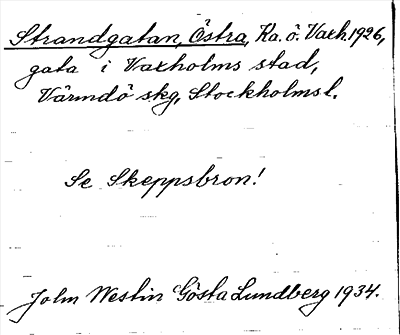 Strandgatan, Östra, Ka. ö. Vaxh. 1926,
gata i Vaxholms stad,
Värmdö skg, Stockholms l.
Se Skeppsbron!
John Westin Gösta Lundberg 1934.